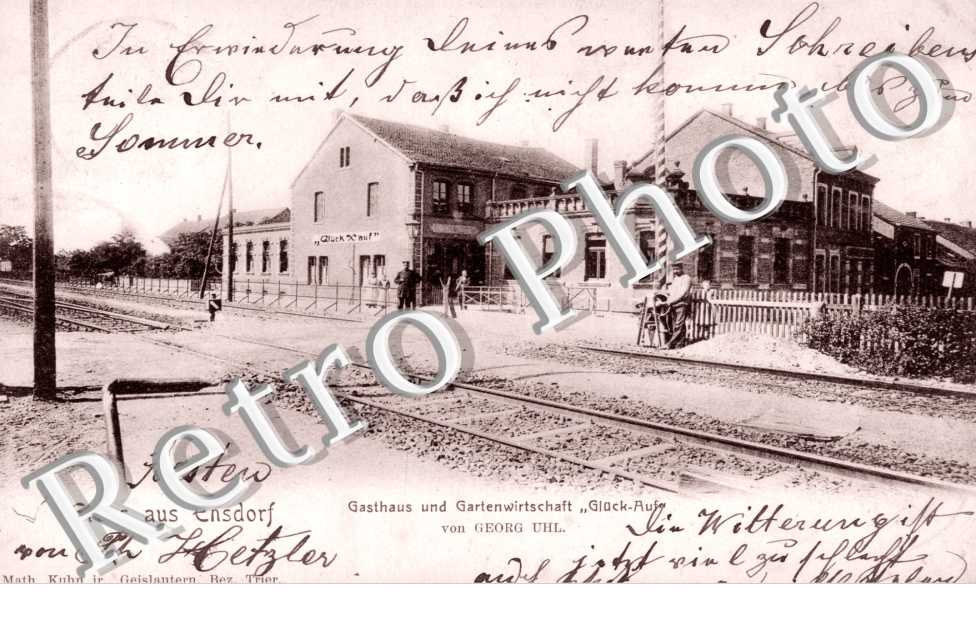 In Erwiederung Deines werten Schreibens
teile Dir mit, daß ich nicht komme bis zum
Sommer.
„Glück auf"
Retro Photo
Besten
aus Ensdorf
von Ph. Hetzler
Gasthaus und Gartenwirtschaft „Glück-Auf"
von GEORG UHL.
Die Witterung ist
jetzt viel zu schlecht
Math. Kuhn jr. Geislautern, Bez. Trier.